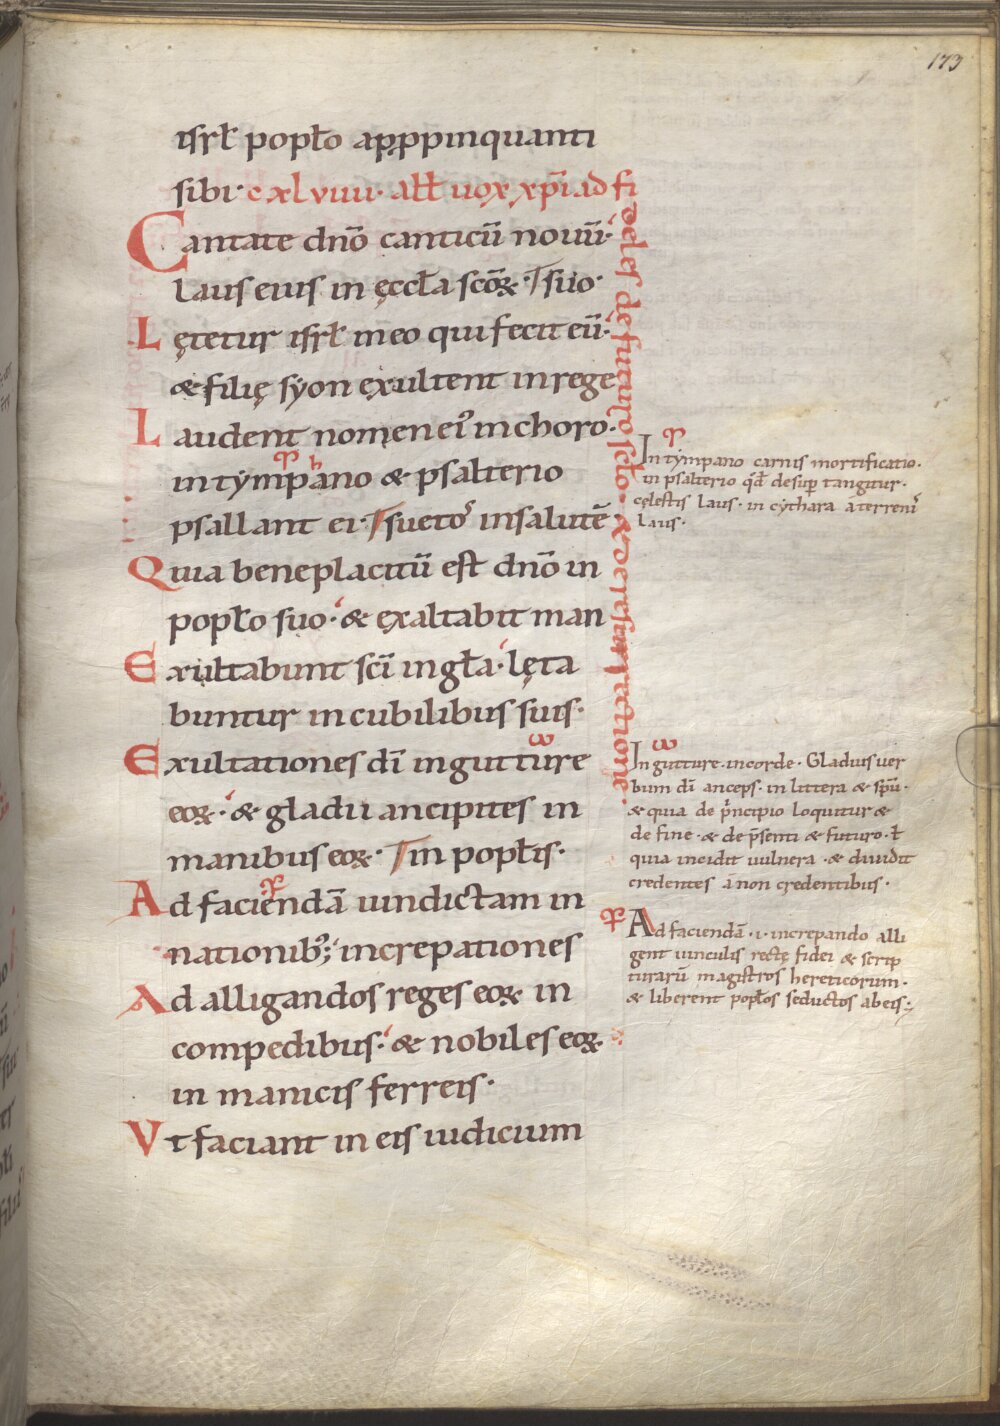 173
isrł popło apppinquanti
sibi· cxlviiii· allł uox xp̄i ad fi
deles de futuro sclo· & de resurrectione·
Cantate dnō canticū nouū·
laus eius in ęccła scōꝝ· suo·
Lętetur isrł in eo qui fecit eū·
& filię syon exultent in rege
Laudent nomen ei᾽ in choro·
in tympano & psalterio
psallant ei· sueto᾽ in salutē
Quia beneplacitū est dnō in
popło suo· & exaltabit man
Exultabunt scī in gła· lęta
buntur in cubilibus suis·
Exultationes dī in gutture
eoꝝ· & gladii ancipites in
manibus eoꝝ· in popłis·
Ad faciendā uindictam in
nationib᾽; increpationes
Ad alligandos reges eoꝝ in
compedibus· & nobiles eoꝝ
in manicis ferreis·
Vt faciant in eis iudicium
In tympano carnis mortificatio·
in psalterio qđ desup tangitur·
cęlestis laus· in cythara a terreni᾽
laus·
In gutture· in corde· Gladius uer
bum dī anceps· in littera & spū·
& quia de p̄ncipio loquitur &
de fine· & de p̄senti & futuro· ł
quia incidit uulnera· & diuidit
credentes a non credentibus·
Ad faciendā·i· increpando alli
gent uinculis rectę fidei & scrip
turarū magistros hereticorum·
& liberent popłos seductos ab eis·